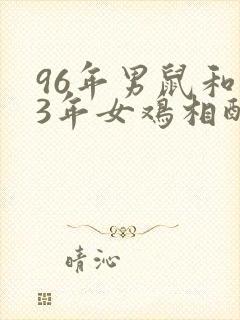 96年男鼠和
3年女鸡相配
晴沁